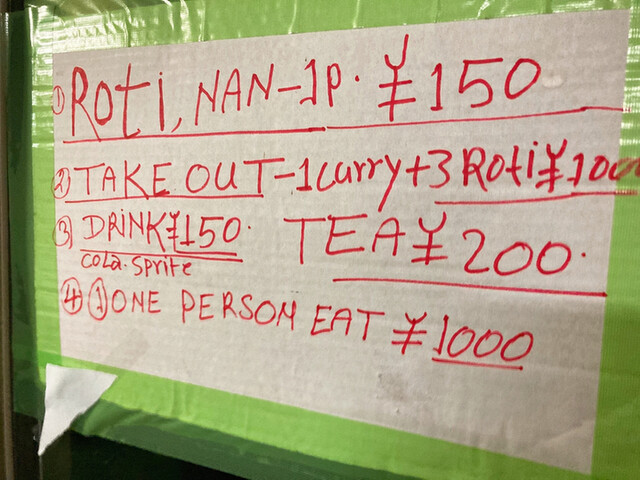 ① Roti, NAN-1p. ¥150
② TAKE OUT-1curry+3 Roti ¥1000
③ DRINK ¥150. TEA ¥200.
cola.sprite
④ ① ONE PERSON EAT ¥1000